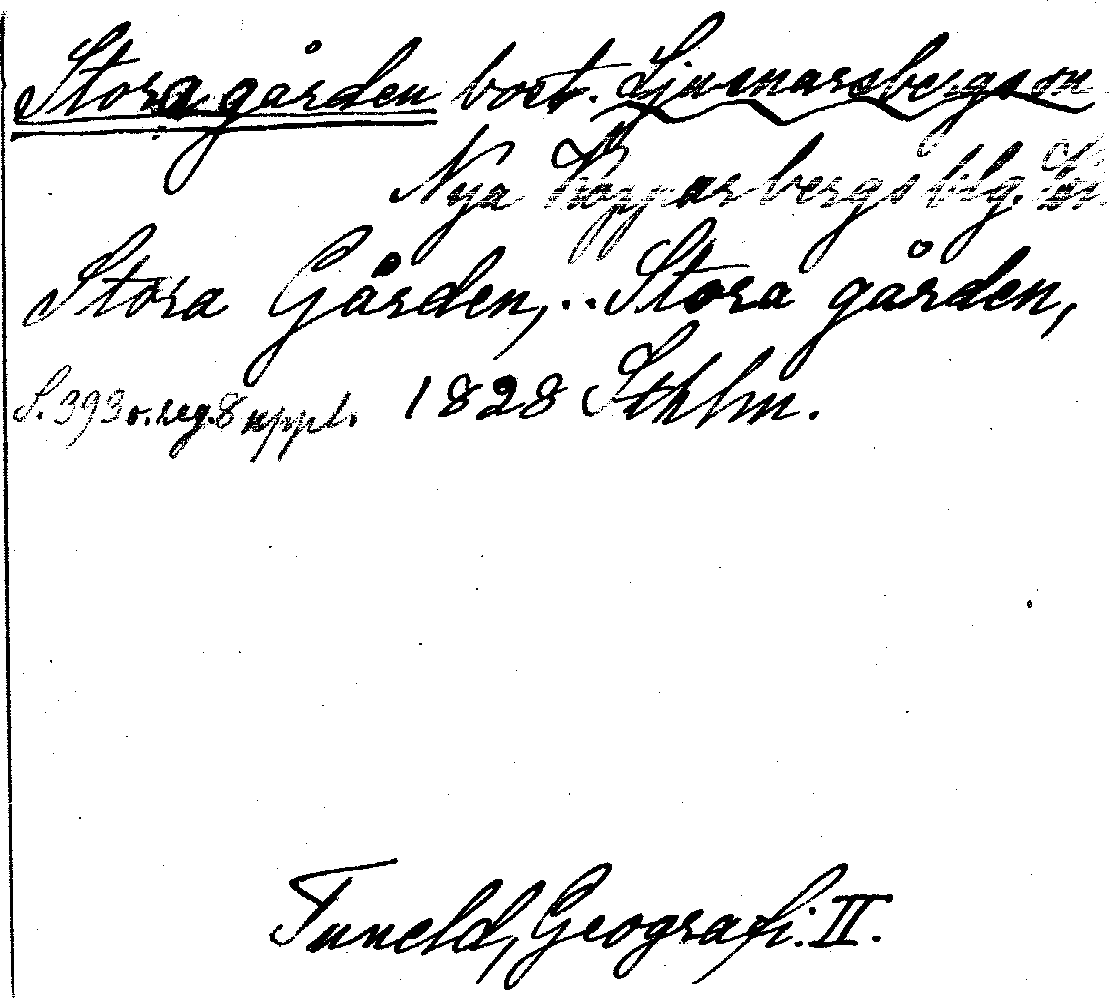 Stora gården bost. Ljusnarsbergs sn
Nya Kopparbergs blg.
Stora Gården,.. Stora gården,
S. 393 o. reg. 8 uppl. 1828 Sthlm.
Tuneld, Geografi. II.